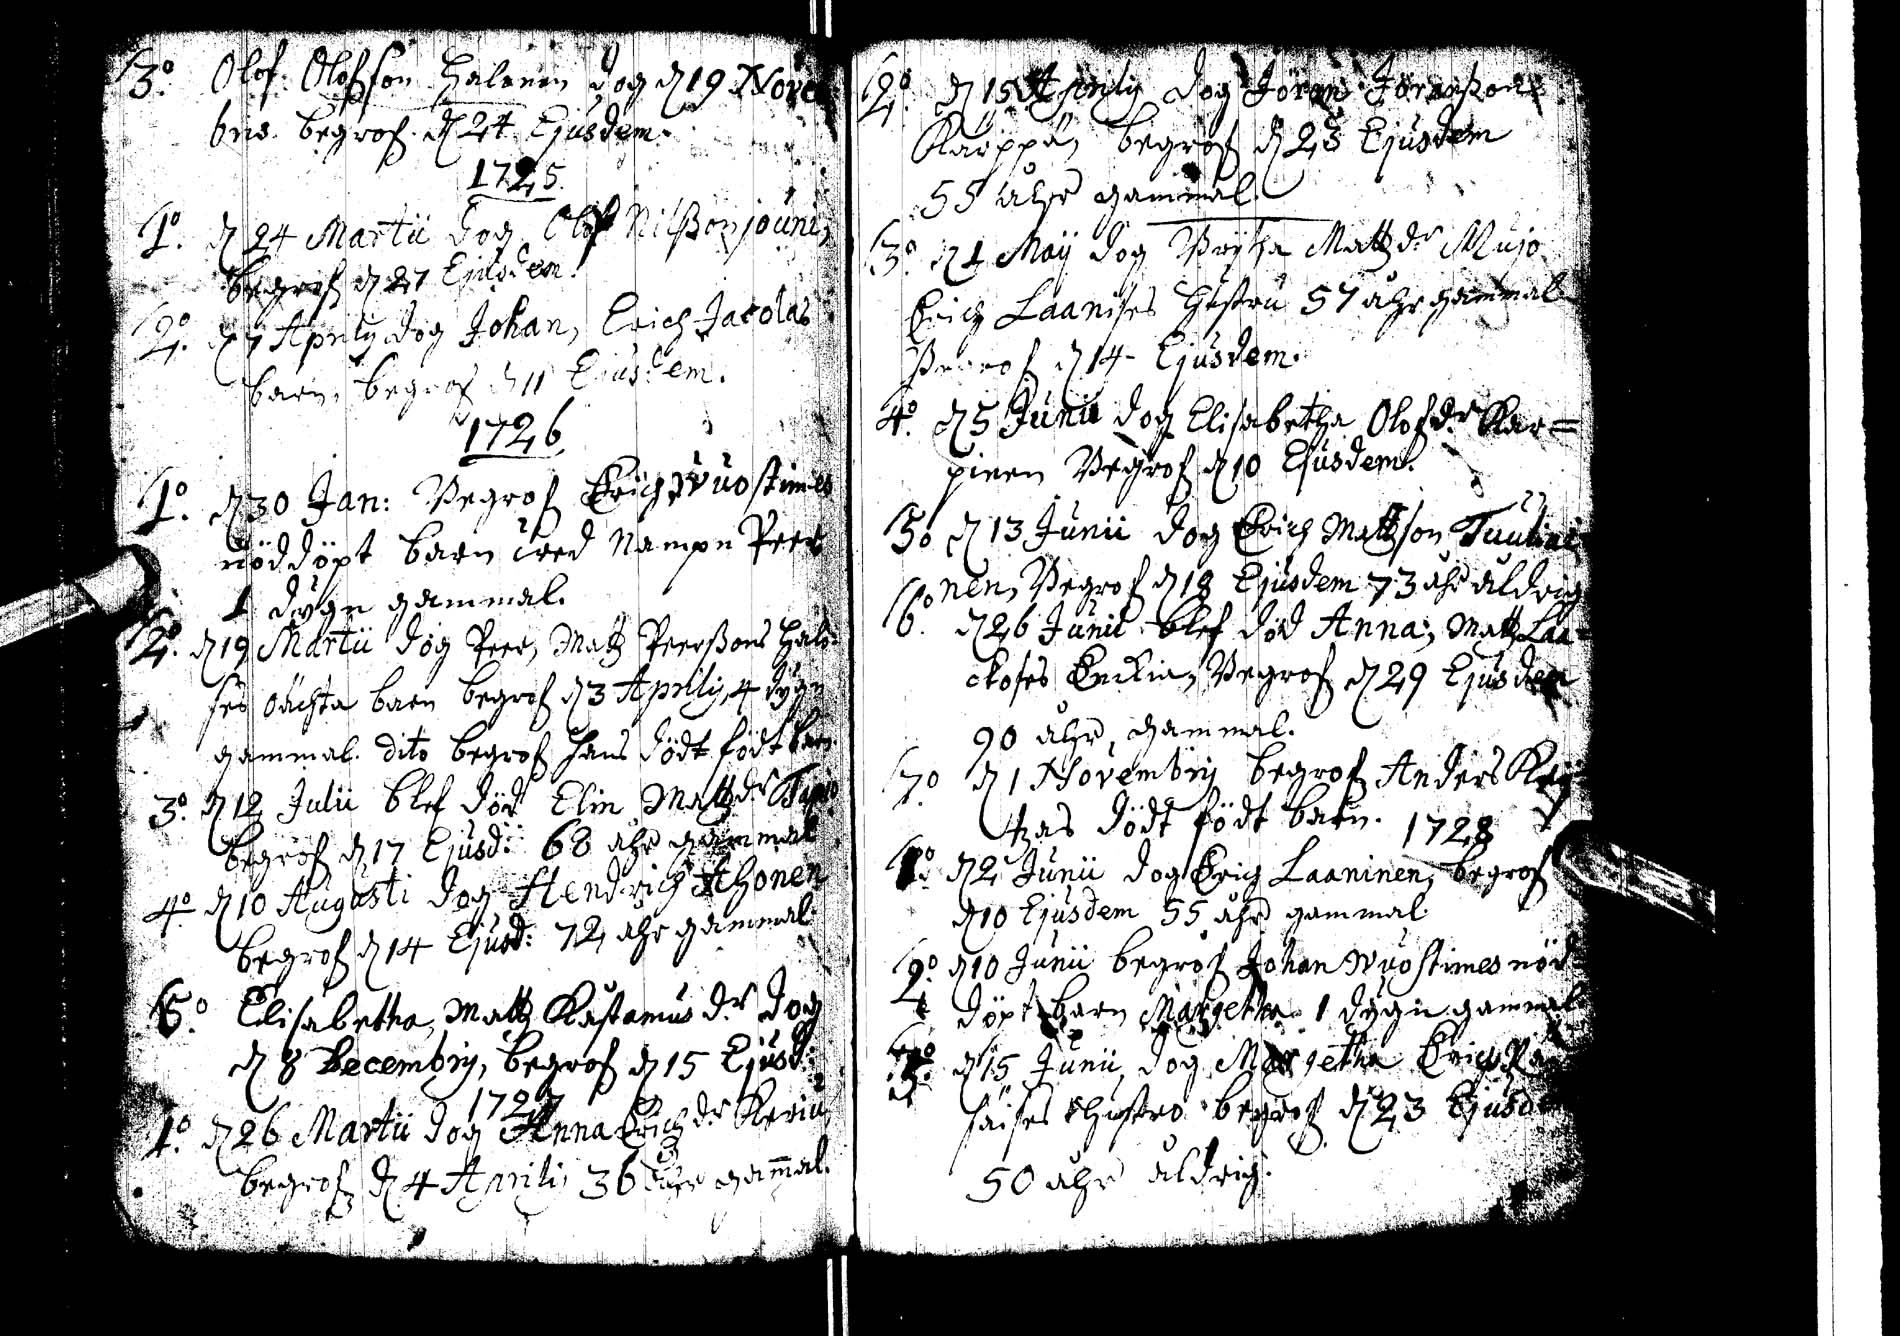 3º Olof Olofson Halonen dog d 19 Novem
bris. begrof. d 24 Ejusdem.
1725.
1º. d 24 Martii dog Olof Nilsson jouni,
begrof d 27 Ejusdem.
2º. d 7 Aprilij dog Johan, Erich Jacolas
barn, begrof d 11 Ejusdem.
1726
1º. d 30 Jan: Begrof Erich Wuostimes
nöddöpt barn wed Nampn Peer
1 dygn gammal.
2º. d 19 Martii dog Peer, Matz Peerssons Halo-
ses oächta barn begrof d 3 Aprilij, 4 dygn
gammal. dito begrof hans dödt födt barn
3º. d 12 Julii blef död Elin Matzdr
begrof d 17 Ejusd: 68 ahr gammal
4º. d 10 Augusti dog Hendrich Ahonen
begrof d 14 Ejusd: 72 ahr gammal.
5º. Elisabetha, Matz Kastamus dr dog
d 8 Decembrij, begrof d 15 Ejusd:
1727
1º. d 26 Martii dog Anna Erichdr
begrof d 4 Aprili, 36 ahr gamal.
2º. d 15 Aprilij dog Jöran Jöransson
begrof d 23 Ejusdem
55 ahr gammal.
3º. d 1 Maij dog Matzdr Mujo
Erich Laanises hustru 57 ahr gammal
Begrof d 14 Ejusdem.
4º. d 5 Junii dog Elisabetha Olofdr Kar=
pinen Begrof d 10 Ejusdem.
5º d 13 Junii dog Erich Matzson
nen, Begrof d 18 Ejusdem 73 ahr aldrig
6º. d 26 Junii blef död Anna, Matz Laa=
ckoses Enckia, Begrof d 29 Ejusdem
90 ahr, gammal.
7º. d 1 Novembrij begrof Anders
dödt födt barn. 1728
1º. d 2 Junii dog Erich Laaninen, begrof
d 10 Ejusdem 55 ahr gammal.
2º. d 10 Junii begrof Johan Wuostimes nöd
döpt barn Margetha 1 dygn gammal
3º. d 15 Junii, dog Margetha Erich
hustro begrof d 23 Ejusdem
50 ahr aldrig.